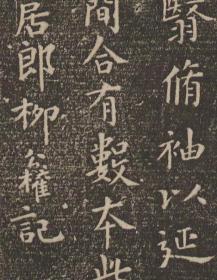 翳脩袖以延
間合有數本此
居郎柳公權記